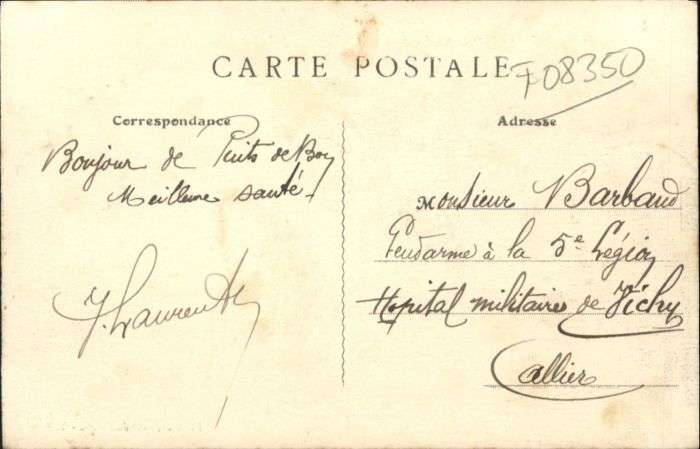 CARTE POSTALE
F08350
Correspondance
Bonjour de Puits de Bon
Meilleure santé
J. Laurent
Adresse
Monsieur Barbaud
Gendarme à la 5e Légion
Hopital militaire de Vichy
Allier